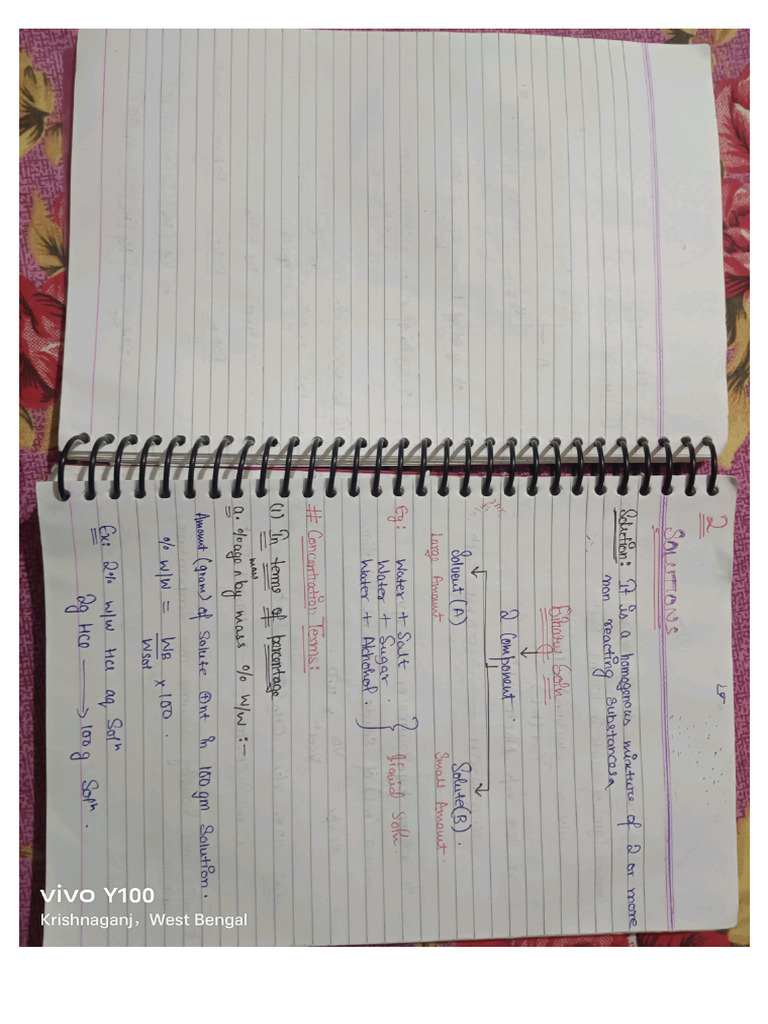 2
SOLUTIONS
Solution: It is a homogenous mixture of 2 or more
non reacting substances
Binary Soln.
2 Component.
Solvent (A) Solute(B).
Large Amount Small Amount.
Eg: Water + Salt
Water + Sugar.
Water + Alchohol.
liquid Soln.
# Concentration Terms:
(1) In terms of percentage
a. %age by mass % W/W :-
Amount (gram) of Solute in 100 gm Solution.
% W/W = WB / Wsol x 100.
Ex: 2% w/w HCl aq Solⁿ
2g HCl → 100g Solⁿ.
vivo Y100
Krishnaganj, West Bengal